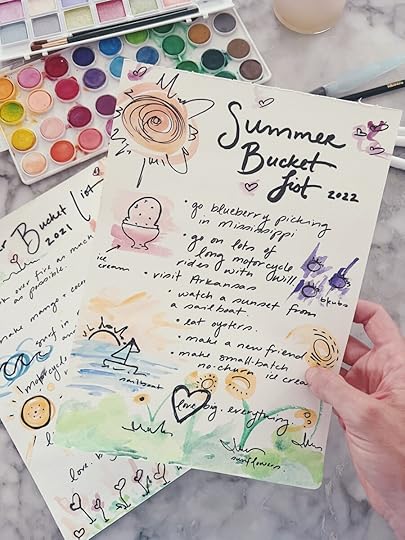 Summer
Bucket
list 2022
• go blueberry picking
in Mississippi
• go on lots of
long motorcycle
rides with Will
• visit Arkansas
watch a sunset from
a sailboat.
• eat oysters.
• make a new friend
• make small-batch
no-churn ice cream
love big. everything.
ice
cream
sailboat
sunflowers
Bucket list
2021
over fire as much
as possible.
make mango
surf in
motorcycle